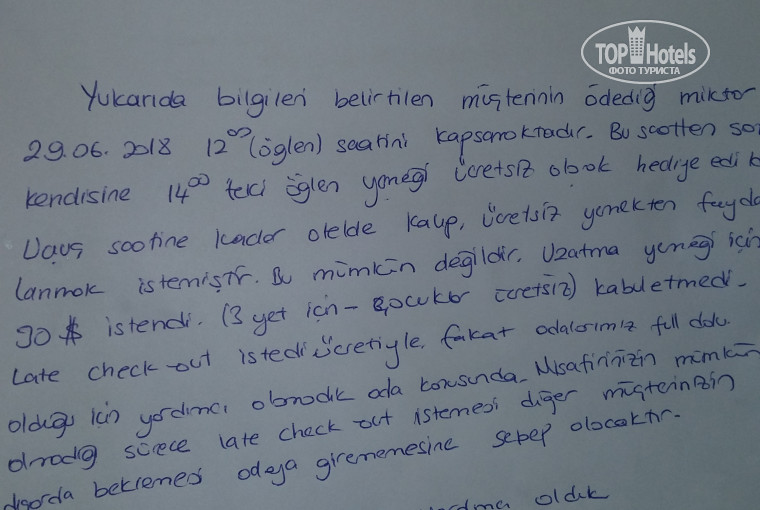 TOP Hotels
ФОТО ТУРИСТА
Yukarıda bilgileri belirtilen müşterinin ödediğ miktar
29.06.2018 12⁰⁰ (öğlen) saatini kapsamaktadır. Bu saatten so
kendisine 14⁰⁰ teki öğlen yemeği ücretsiz olarak hediye edi
Uçuş saatine kadar otelde kalıp, ücretsiz yemekten fayda
lanmak istemiştir. Bu mümkün değildir. Uzatma yemeği için
90 $ istendi. (3 yet için - çocuklar ücretsiz) kabul etmedi.
Late check-out istedi ücretiyle, fakat odalarımız full dolu
olduğu için yardımcı olamadık oda konusunda. Misafirinizin mümkün
olmadığ sürece late check out istemesi diğer müşterinizin
dışarda beklemesi odaya girememesine sebep olacaktır.
oldık